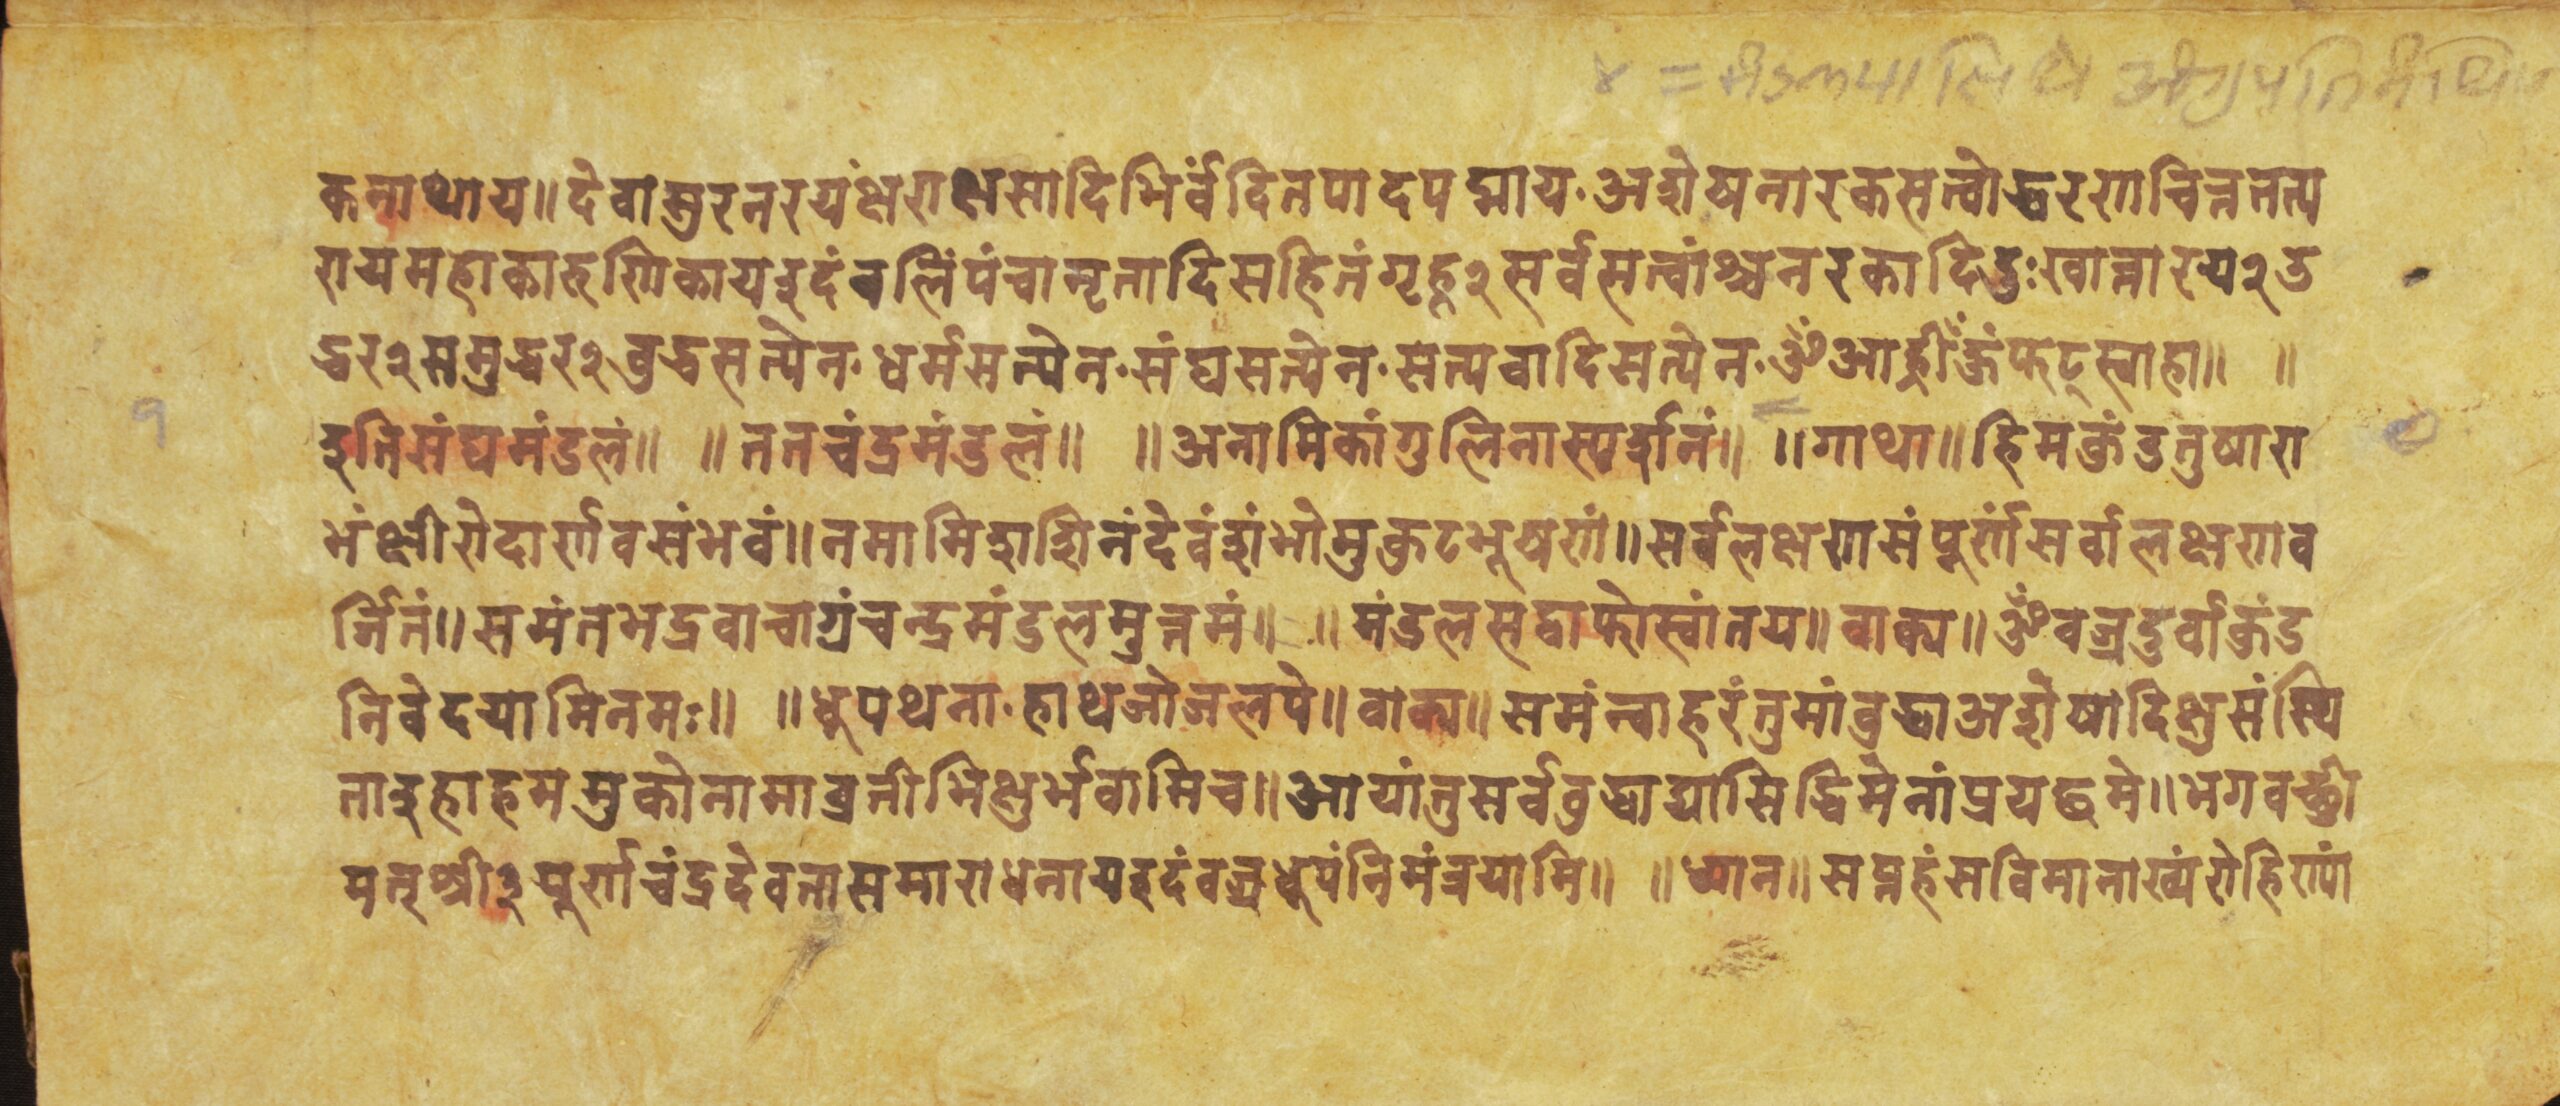 कनाथाय॥देवासुरनरयंक्षराक्षसादिभिर्वंदितपादपद्माय·अशेषनारकसत्वोद्धरणाचित्ततत्प
रायमहाकारुणिकायइदंवलिंपंचामृतादिसहितंगृह्ण२सर्वसत्वांश्चनरकादिदुःखात्तारय२उ
द्धर२समुद्धर२वुद्धसत्येन·धर्मसत्येन·संघसत्येन·सत्यवादिसत्येन·ॐआह्रीँऊंफट्स्वाहा॥ ॥
इतिसंघमंडलं॥ ॥ततचंद्रमंडलं॥ ॥अनामिकांगुलिनास्पर्शनं॥ ॥गाथा॥हिमकुंडतुषारा
भंक्षीरोदार्णवसंभवं॥नमामिशशिनंदेवंशंभोमुकुटभूषणं॥सर्वलक्षणसंपूर्णंसर्वालक्षणव
र्जितं॥समंतभद्रवाचाग्रंचन्द्रमंडलमुत्तमं॥ ॥मंडलसद्वाफोस्वांतय॥वाक्य॥ॐवज्रदुर्वाकुंड
निवेदयामिनमः॥ ॥धूपथना·हाथजोजलपे॥वाक्य॥समंन्वाहरंतुमांवुद्धाअशेषादिक्षुसंस्थि
ताइहाहममुकोनामाव्रतीभिक्षुर्भवामिच॥आयांतुसर्ववुद्धाद्यासिद्धिमेतांप्रयछमे॥भगवच्छ्री
मत्श्री३पूर्णचंद्रदेवतासमाराधनायइदंवज्रधूपंनिमंत्रयामि॥ ॥ध्यान॥सप्तहंसविमानाख्यंरोहिण्यां
१